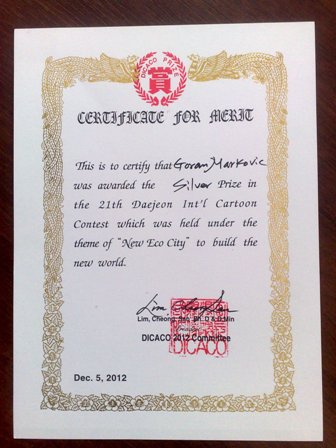 DICACO PRIZE
賞
CERTIFICATE FOR MERIT
This is to certify that Goran Markovic
was awarded the Silver Prize in
the 21th Daejeon Int'l Cartoon
Contest which was held under the
theme of "New Eco City" to build the
new world.
Lim, Cheong, San Ph. D & D.Min
DICACO 2012 Committee
DICACO
Dec. 5, 2012